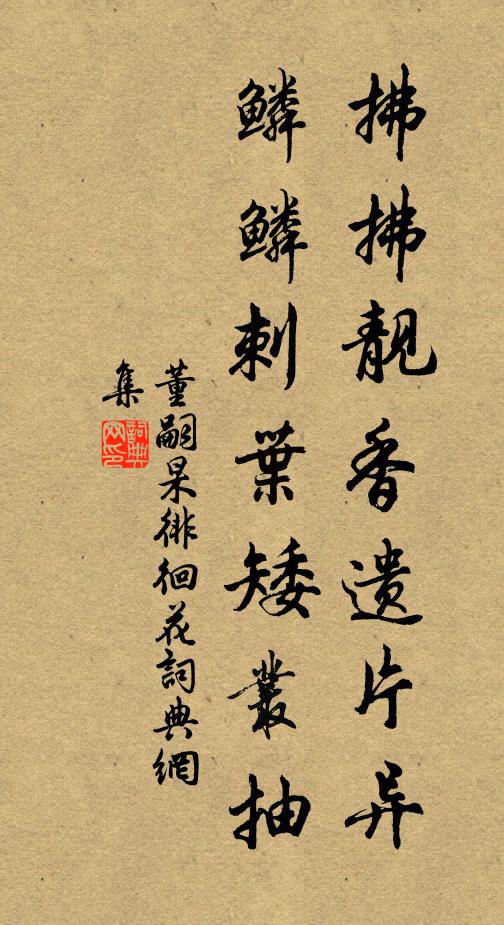 拂拂靚香遺片异
鱗鱗刺葉矮叢抽
董嗣杲徘徊花詞典網
集
詞典
网印